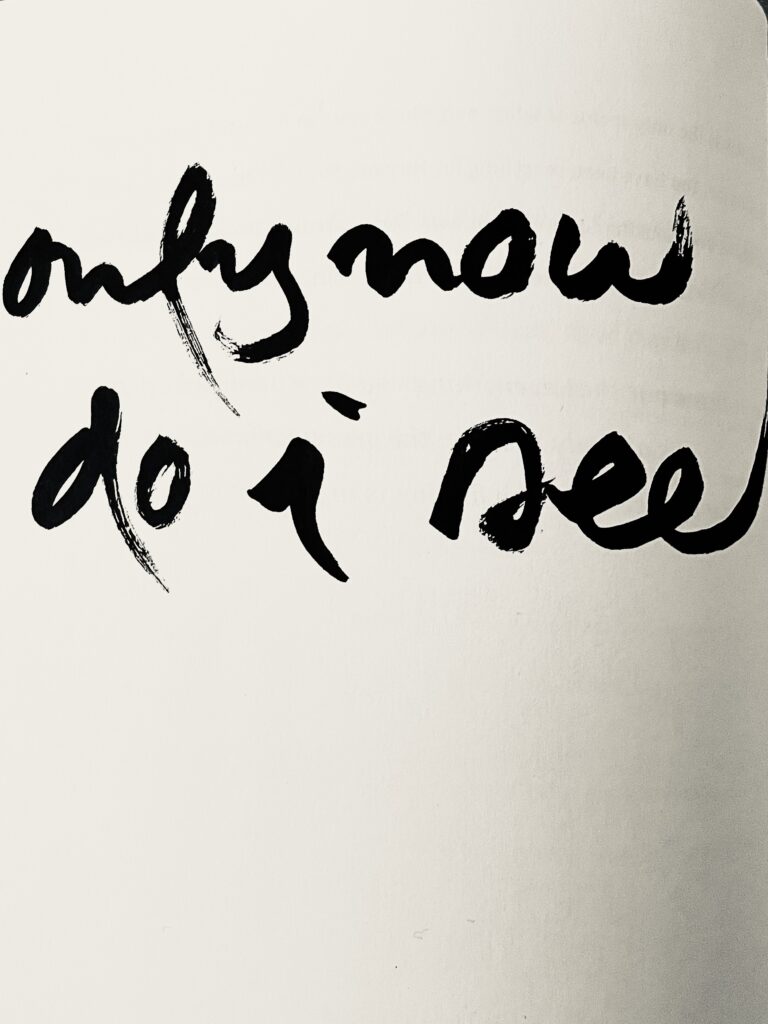 only now
do i see